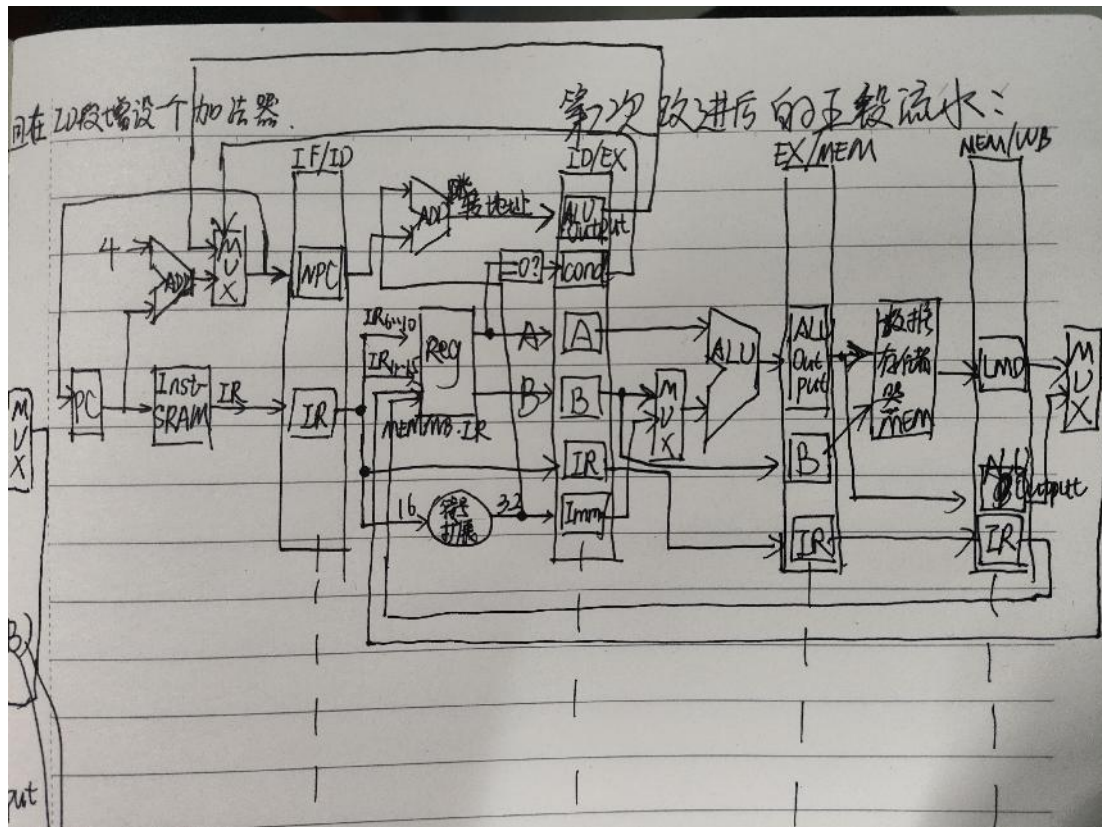 且在ID段增设个加法器.
第次改进后的五段流水:
IF/ID
ID/EX
EX/MEM
MEM/WB
4
ADD
MUX
NPC
ADD
跳转地址
ALU Output
=0?
cond
PC
Instr SRAM
IR
IR
IR6..10
IR11..15
Reg
MEM/WB.IR
A
B
A
B
IR
Imm
16
符号扩展
32
MUX
ALU
ALU Output
B
IR
数据存储器
MEM
LMD
Output
IR
MUX
MUX
B)
put